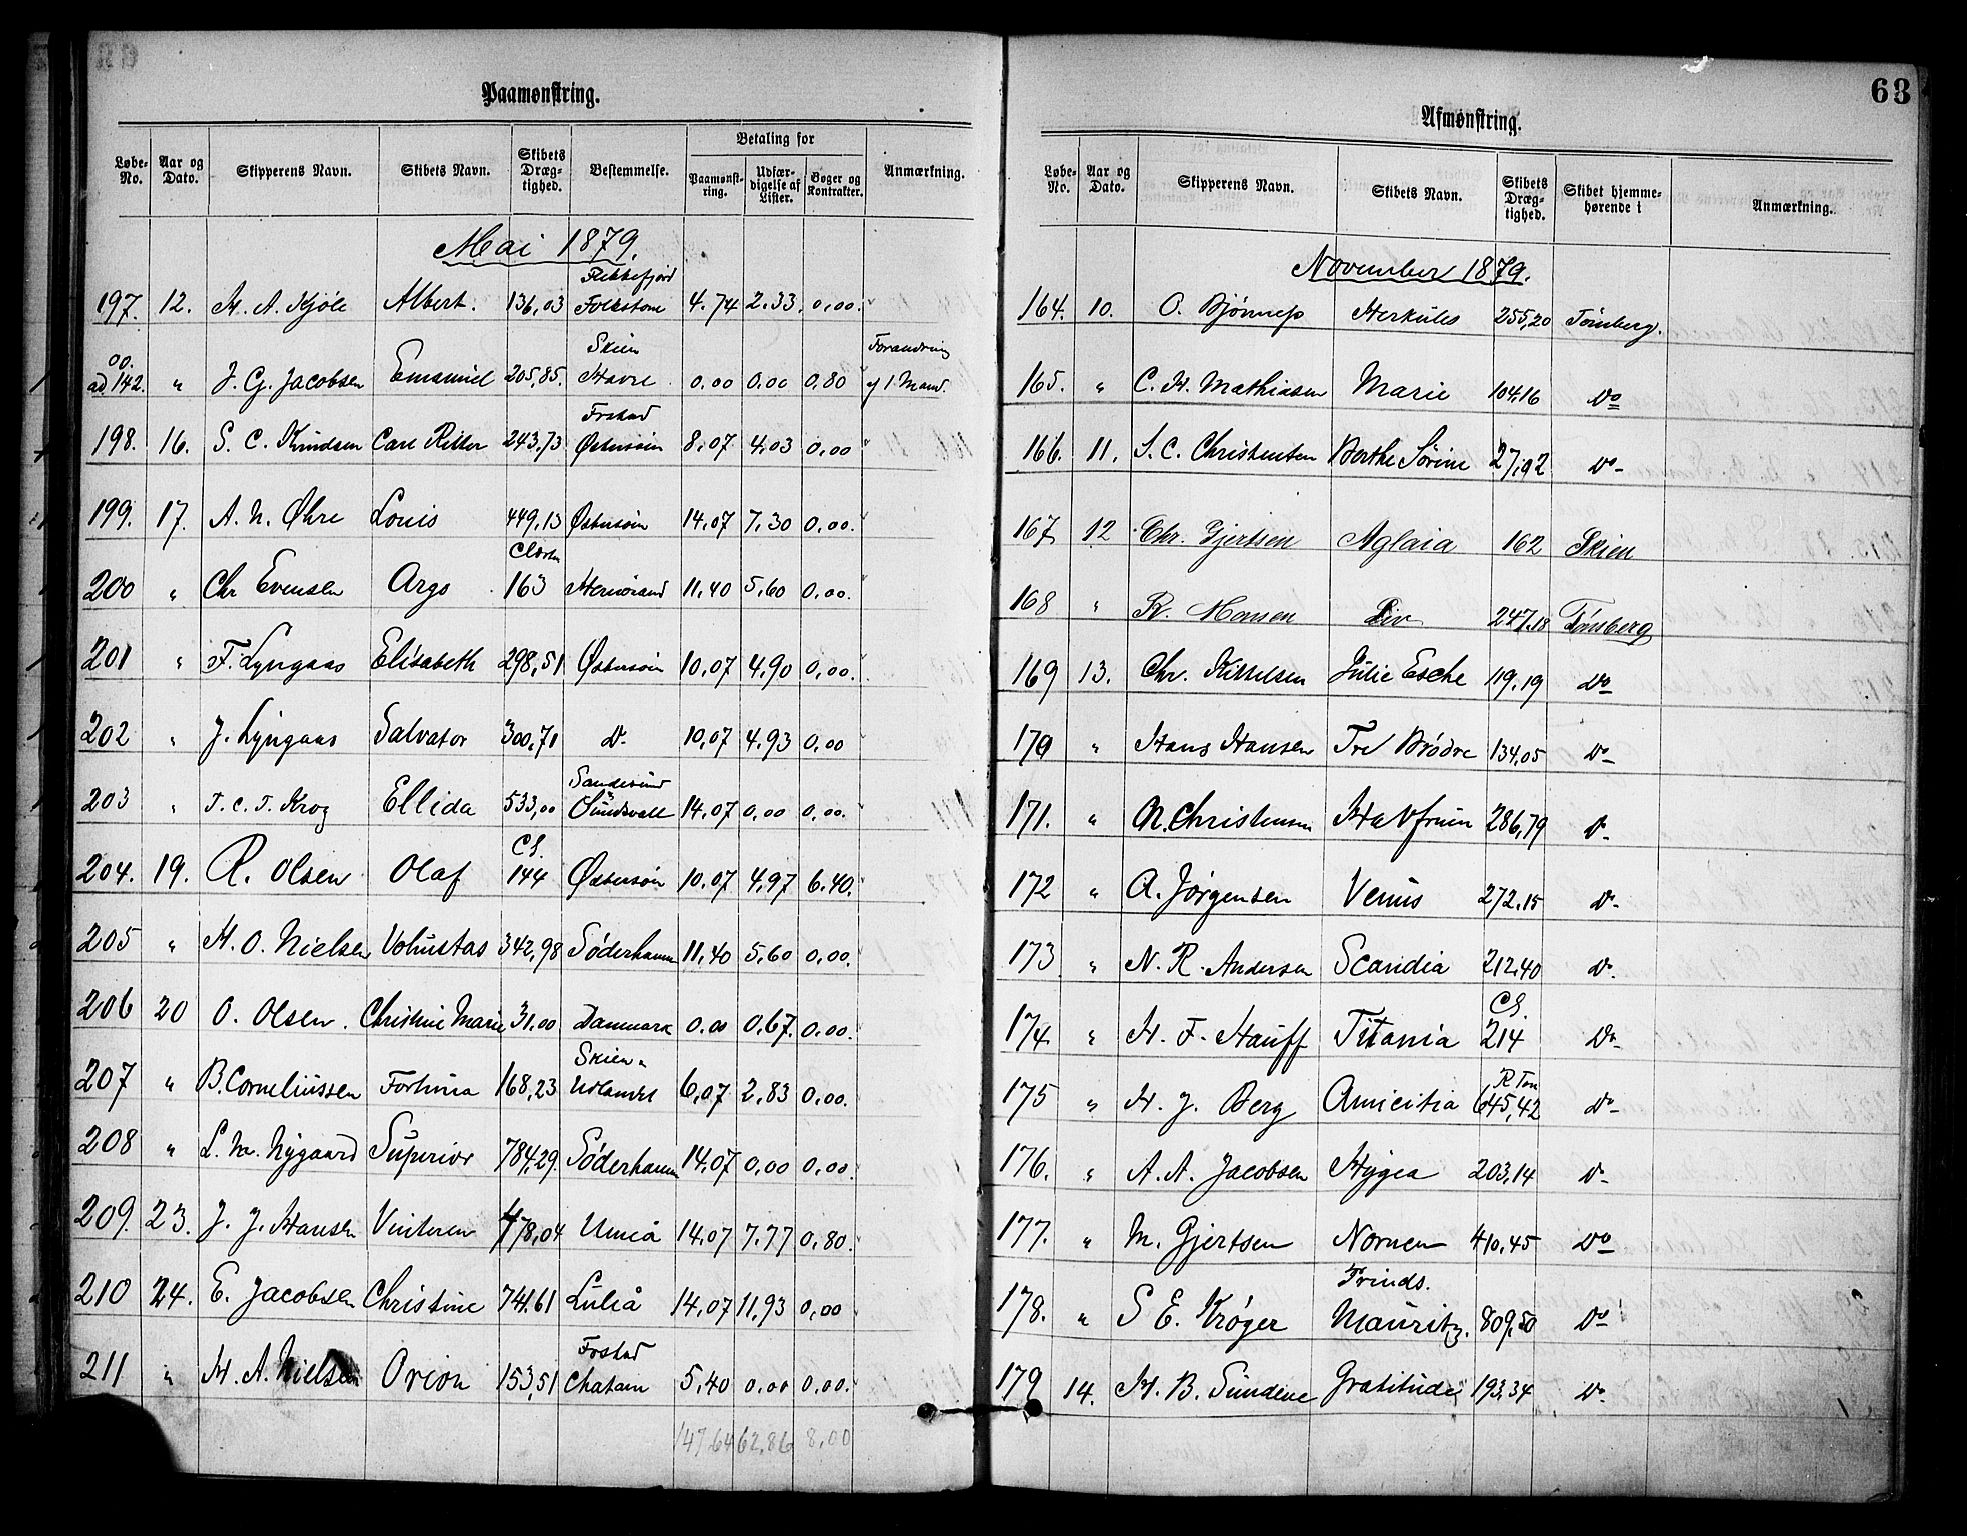 Paamønstring.
Løbe-No. Aar og Dato. Skipperens Navn. Skibets Navn. Skibets Dræg-tighed. Bestemmelse. Betaling for Paamønst-ring. Udfær-digelse af Lister. Bøger og Kontrakter. Anmærkning.
Mai 1879.
197. 12. H. A. Kjöle Albert. 136,03 Flekkefjord Folkstone 4.74 2.33 0,00. "
ad 142. " J. G. Jacobsen Emanuel 205,85. Skien Havre 0.00 0.00 0,80 Forandring af 1 Mand.
198. 16. S. C. Knudsen Carl Ritter 243,73 Frstad Østersöin 8,07 4,03 0,00 "
199. 17. A. N. Øhre Louis 449,13 Østersöin 14.07 7,30 0,00. "
200 " Chr Evensen Argo Clæster 163 Hernösand 11,40 5,60 0,00. "
201 " F. Lyngaas Elisabeth 298,51 Østersöin 10,07 4,90 0,00. "
202 " J. Lyngaas Salvator 300,71 Do 10,07 4.93 0,00 "
203 " T. C. T. Krog Ellida 533,00 Sandesund Sundsvall 14,07 0,00 0,00. "
204. 19. R. Olsen Olaf CL. 144 Østersöin 10,07 4,97 6,40. "
205 " H. O. Nielsen 342,98 Söderhamn 11,40 5,60 0,00.
206 20 O. Olsen. Christine Marie 31.00 Danmark 0,00 0,67. 0,00.
207 " B. Corneliussen Fortuna 168,23 Skien " Udlandet 6,07 2,83 0,00.
208 " L. M. Nygaard Superior 784,29. Söderhamn 14,07 0,00 0,00.
209. 23. J. J. Hansen 478,04 Umeå 14,07 7,77 0,80.
210 24. E. Jacobsen Christine 741.61 Luleå 14,07 11,93 0,00
211 " H. A. Nielsen Orion 153,51 Frstad Chatam 5,40 0,00 0,00.
147,64 62,86 8,00
63
Afmønstring.
Løbe-No. Aar og Dato. Skipperens Navn. Skibets Navn. Skibets Dræg-tighed. Skibet hjemme-hørende i Anmærkning.
November 1879.
164. 10. O. Herkules 255,20 Tønsberg.
165. " C. H. Mathiasen Marie 104,16 Do
166. 11. S. C. Christensen Berthe Sörine 27,92 Do
167 12 Chr. Gjertsen Aglaia 162 Skien
168 " R. Hansen Liv 247.18 Tönsberg
169 13. Chr. Kittelsen Julie Esche 119.19 Do
170 " Hans Hansen Tre Brödre 134,05 Do
171. " N. Christensen Havfruen 286,79 Do
172 " A. Jörgensen Venus 272.15 Do
173 " N. R. Andersen Scandia 212,40 Do
174 " H. F. Hauff Titania CL. 214 Do
175 " H. J. Berg Amicitia R Ton 645,42 Do
176. " A. A. Jacobsen Hygea 203,14 Do
177. " M. Gjertsen Nornen 410,45 Do
178. " S E. Kröger Prinds. Mauritz. 809,50 Do
179 14. H. B. Sundene Gratitude 193,34 Do